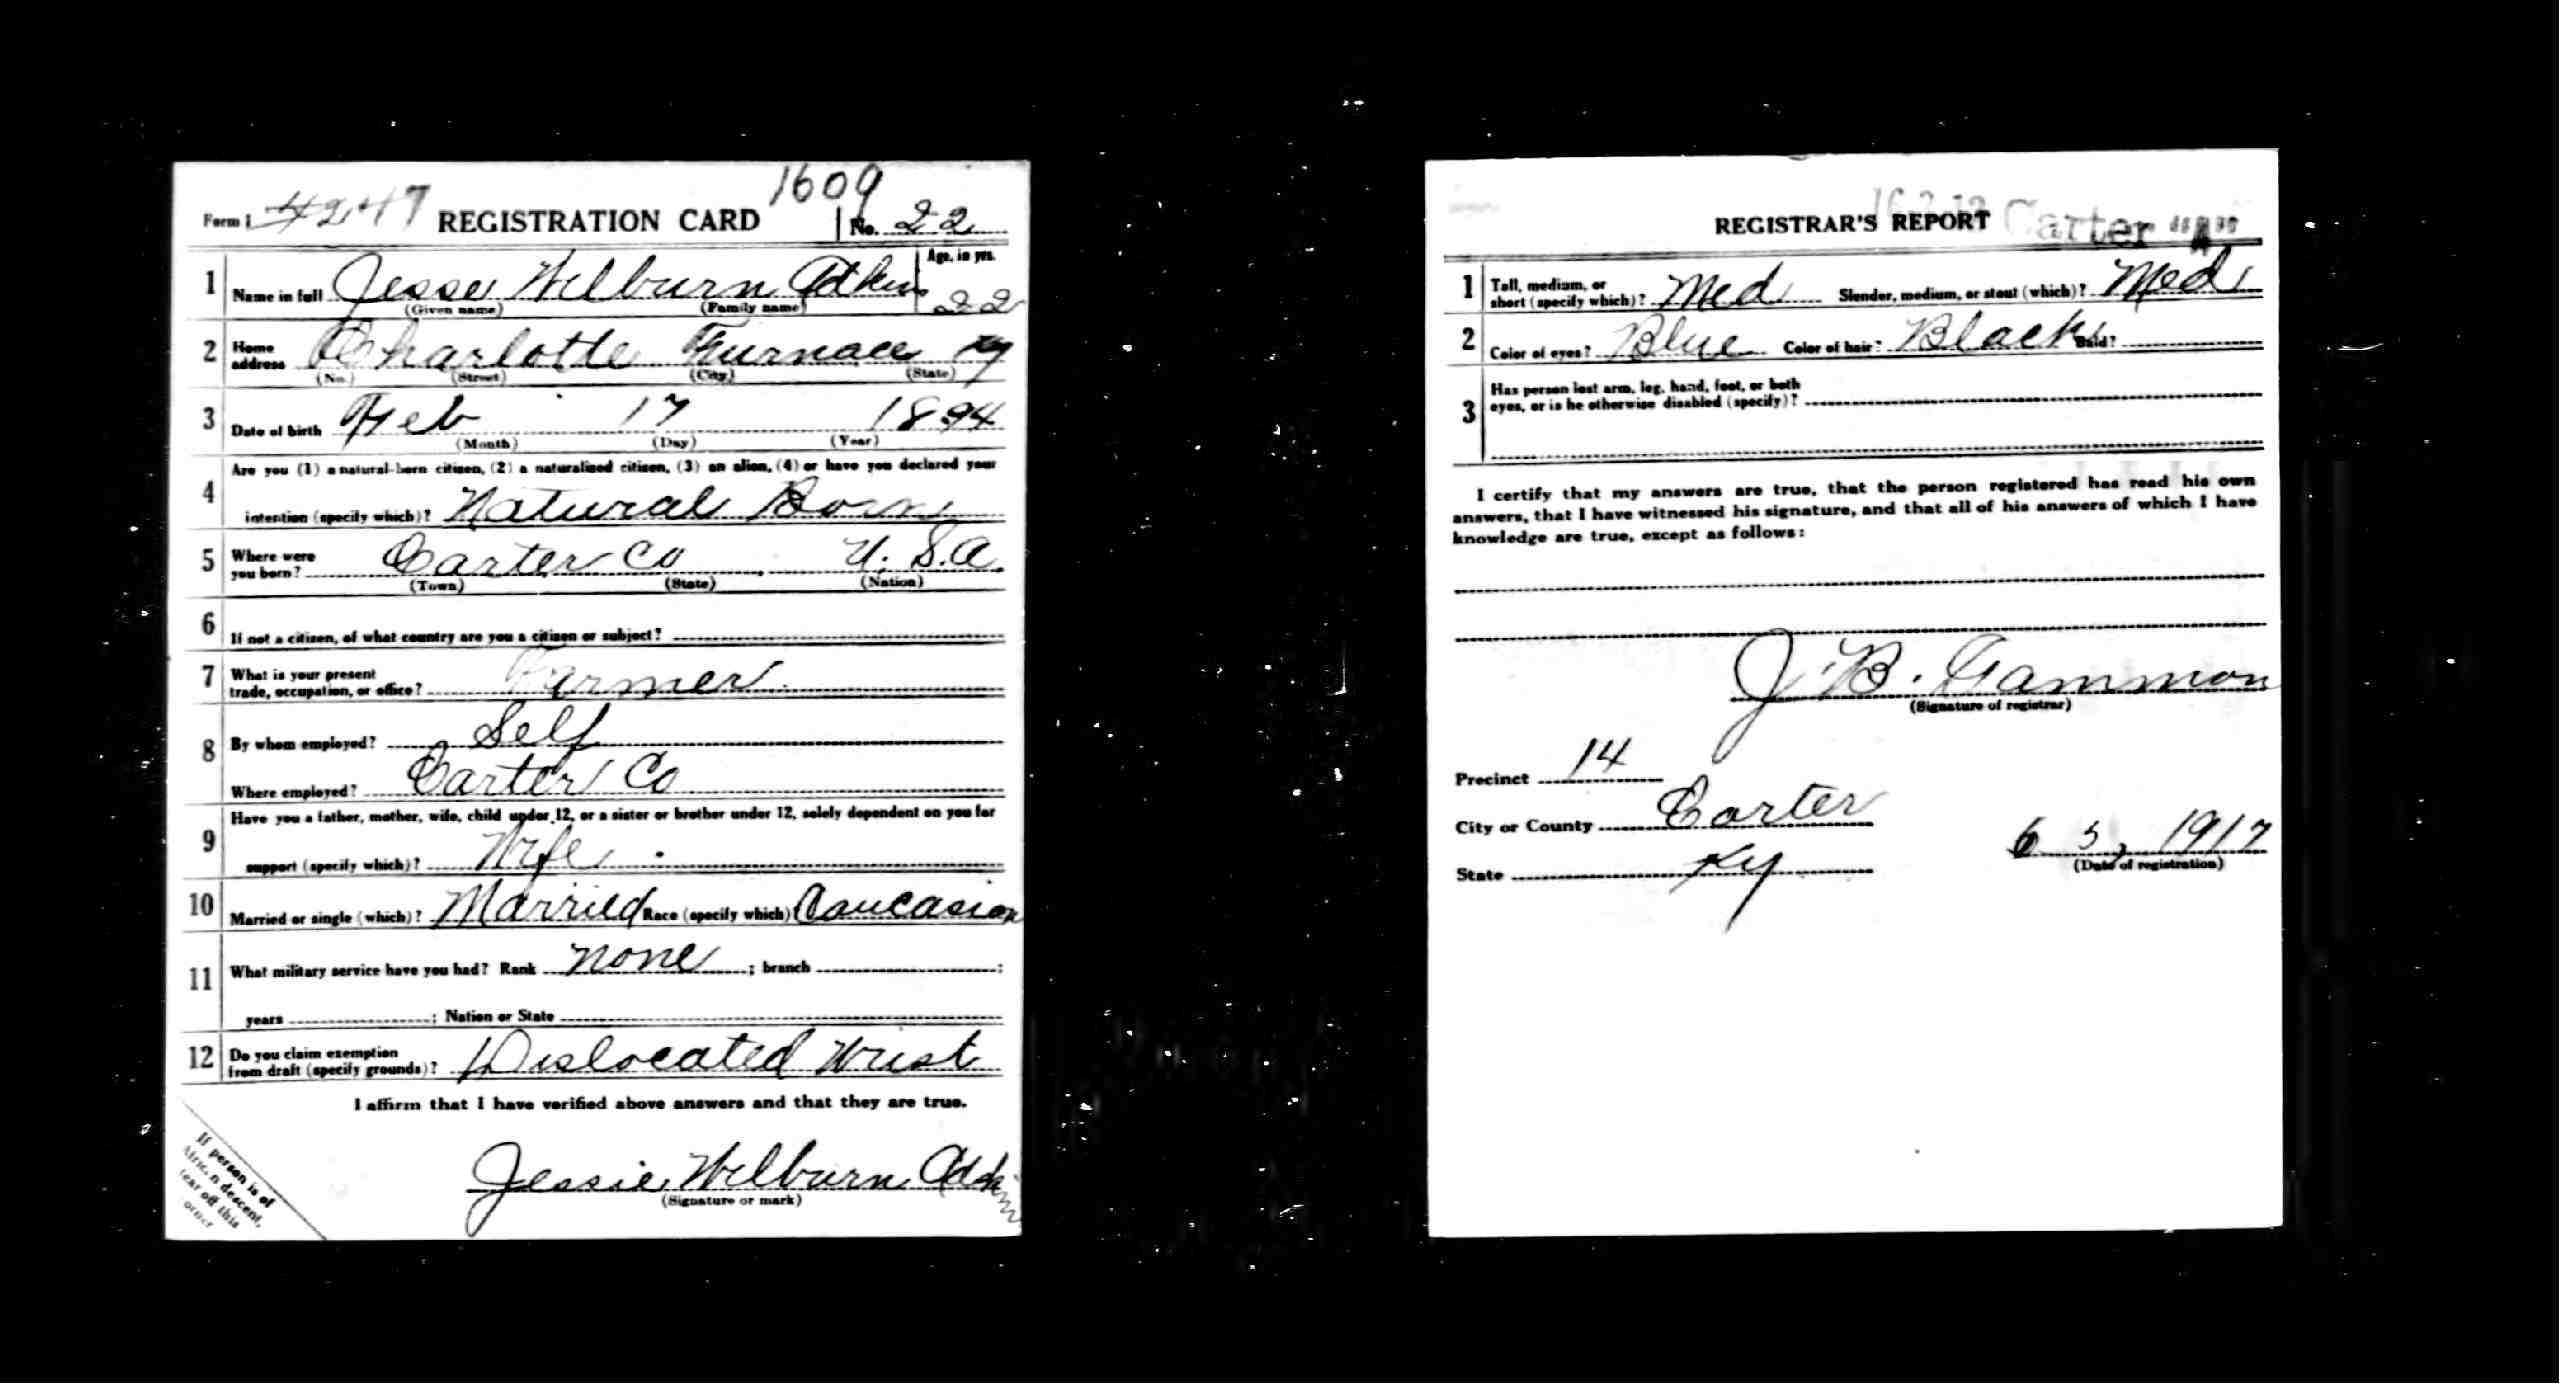 1609
Form 1 #247 REGISTRATION CARD No. 22
1 Name in full Jesse Wilburn Adkins Age, in yrs. 22
(Given name) (Family name)
2 Home address Charlotte Furnace Ky
(No.) (Street) (City) (State)
3 Date of birth Feb 17 1894
(Month) (Day) (Year)
4 Are you (1) a natural-born citizen, (2) a naturalized citizen, (3) an alien, (4) or have you declared your
intention (specify which)? Natural Born
5 Where were you born? Carter Co U.S.A.
(Town) (State) (Nation)
6 If not a citizen, of what country are you a citizen or subject?
7 What is your present trade, occupation, or office? Farmer
8 By whom employed? Self
Where employed? Carter Co
9 Have you a father, mother, wife, child under 12, or a sister or brother under 12, solely dependent on you for
support (specify which)? Wife
10 Married or single (which)? Married Race (specify which)? Caucasian
11 What military service have you had? Rank none ; branch ;
years ; Nation or State
12 Do you claim exemption from draft (specify grounds)? Dislocated Wrist
I affirm that I have verified above answers and that they are true.
Jessie Wilburn Adkins
(Signature or mark)
If person is of
African descent,
tear off this
corner
REGISTRAR'S REPORT Carter "A"
1 Tall, medium, or short (specify which)? Med Slender, medium, or stout (which)? Med
2 Color of eyes? Blue Color of hair? Black Bald?
3 Has person lost arm, leg, hand, foot, or both
eyes, or is he otherwise disabled (specify)?
I certify that my answers are true, that the person registered has read his own
answers, that I have witnessed his signature, and that all of his answers of which I have
knowledge are true, except as follows:
J. B. Gammon
(Signature of registrar)
Precinct 14
City or County Carter
State Ky
6 5, 1917
(Date of registration)